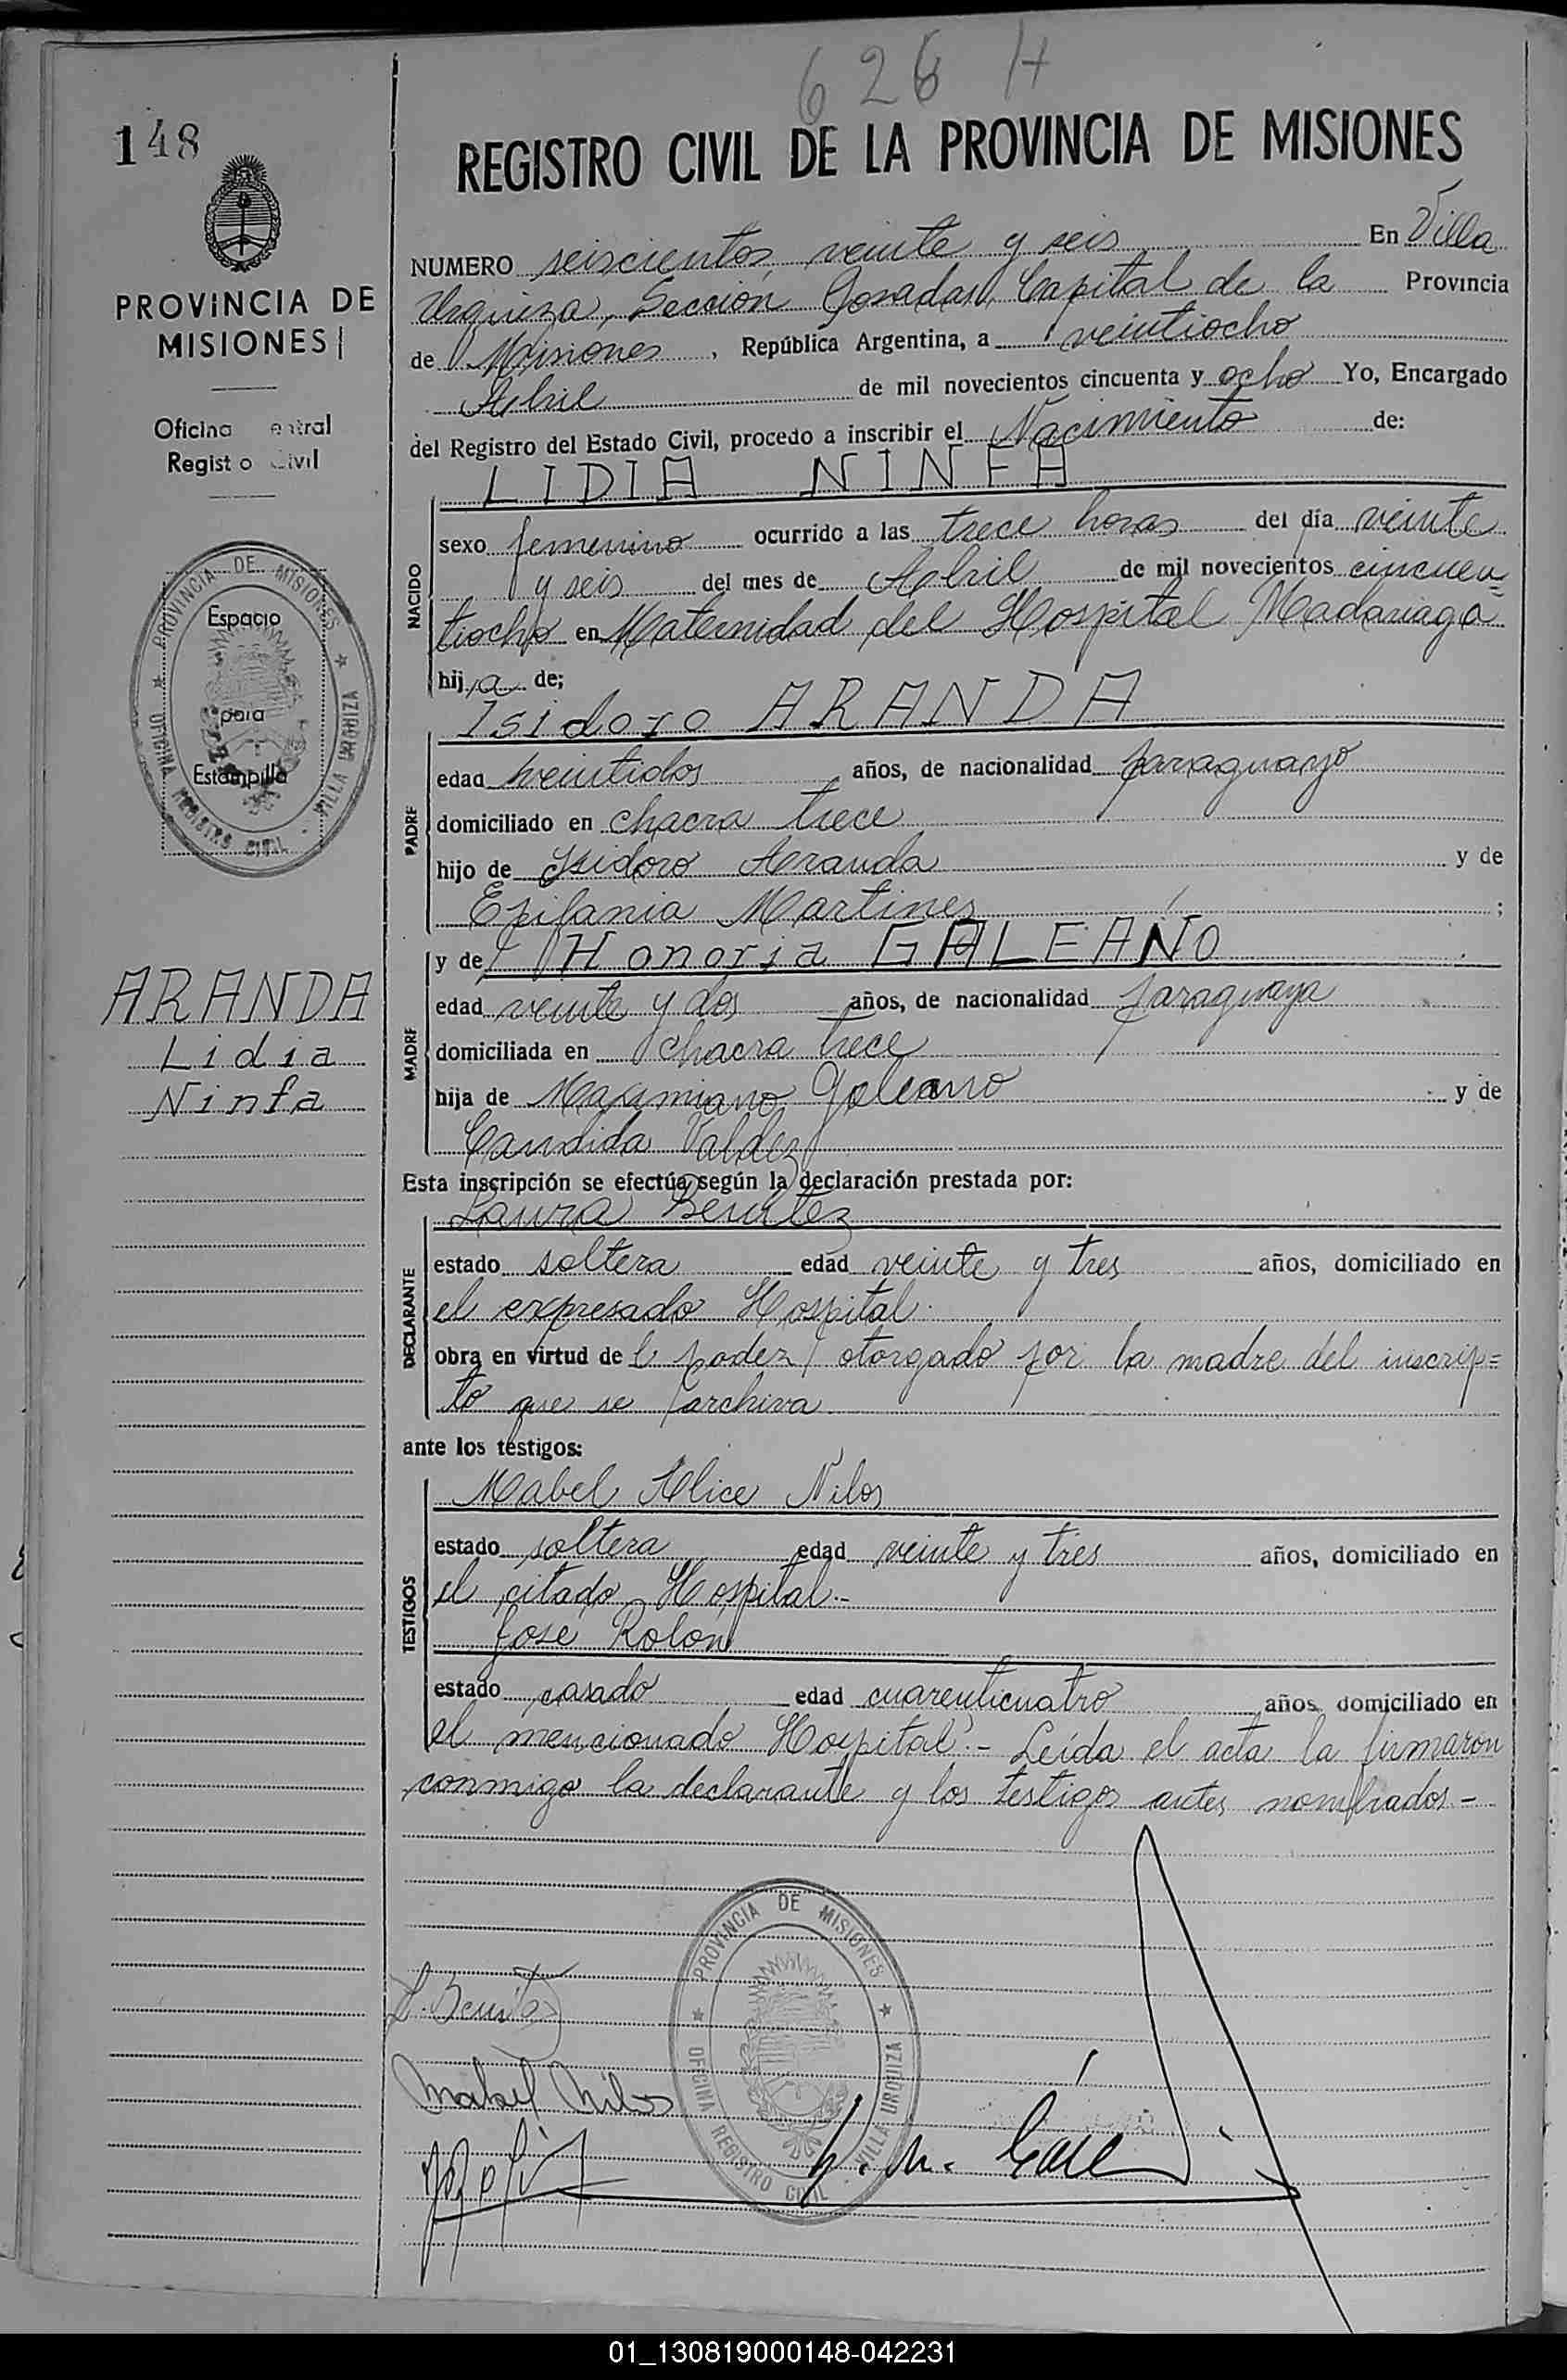 626 H
148
REGISTRO CIVIL DE LA PROVINCIA DE MISIONES
PROVINCIA DE
MISIONES
Oficina entral
Regist o Civil
PROVINCIA DE MISIONES
OFICINA REGISTRO CIVIL - VILLA URQUIZA
Espacio
para
Estampilla
ARANDA
Lidia
Ninfa
NUMERO seiscientos veinte y seis En Villa
Urquiza, Sección Posadas, Capital de la Provincia
de Misiones, República Argentina, a veintiocho
Abril de mil novecientos cincuenta y ocho Yo, Encargado
del Registro del Estado Civil, procedo a inscribir el Nacimiento de:
NACIDO
LIDIA NINFA
sexo femenino ocurrido a las trece horas del día veinte
y seis del mes de Abril de mil novecientos cincuen=
tiocho en Maternidad del Hospital Madariaga
hija de;
PADRE
Isidoro ARANDA
edad veintidos años, de nacionalidad paraguayo
domiciliado en chacra trece
hijo de Isidoro Aranda y de
Epifania Martines ;
MADRE
y de Honoria GALEANO
edad veinte y dos años, de nacionalidad paraguaya
domiciliada en chacra trece
hija de Maximiano Galeano y de
Candida Valdez
Esta inscripción se efectúa según la declaración prestada por:
DECLARANTE
Laura Benitez
estado soltera edad veinte y tres años, domiciliado en
el expresado Hospital.
obra en virtud de l poder otorgado por la madre del inscrip=
to que se archiva
ante los testigos:
TESTIGOS
Mabel Alice Nilos
estado soltera edad veinte y tres años, domiciliado en
el citado Hospital.-
Jose Rolon
estado casado edad cuarenticuatro años, domiciliado en
el mencionado Hospital.- Leída el acta la firmaron
conmigo la declarante y los testigos antes nombrados-
PROVINCIA DE MISIONES
OFICINA REGISTRO CIVIL - VILLA URQUIZA
L. Benitez
Mabel Nilos
01_130819000148-042231